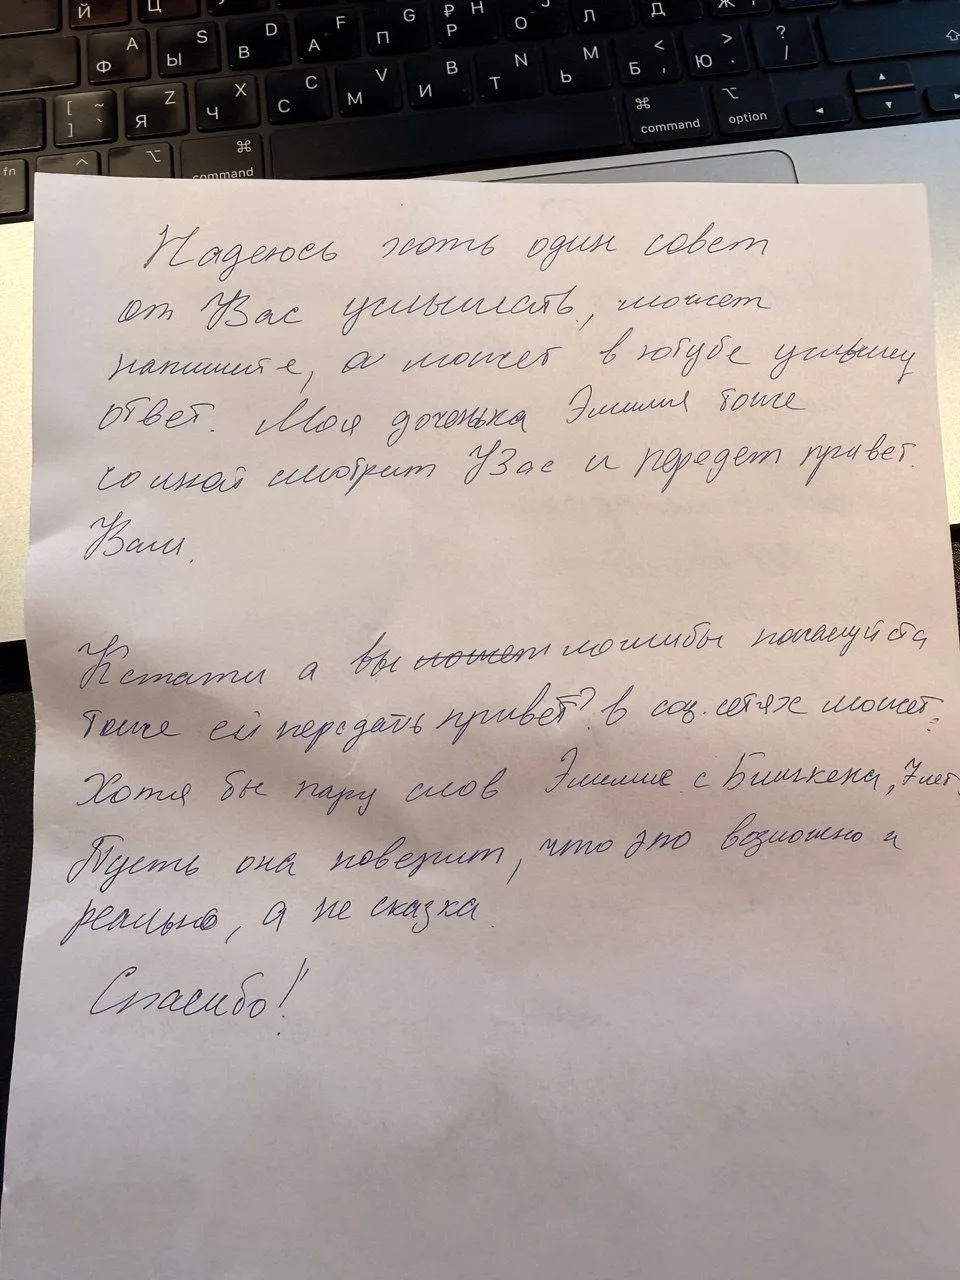 Й Ц
Ф A Ы S В D А F П G Р ₽ H О J Л Д Ж
[ ] ~ ` Я Z Ч X С C М V И B Т N Ь M Б < , Ю > . ? /
fn ⌃ ⌥ ⌘ command ⌘ command ⌥ option
Надеюсь хоть один совет
от Вас услышать, может
напишите, а может в ютубе услышу
ответ. Моя доченька Эмилия тоже
со мной смотрит Вас и передет привет
Вам.
Кстати а вы может могли бы пожалуйста
тоже ей передать привет? в соц. сетях может?
Хотя бы пару слов Эмилие с Бишкека, 7 лет.
Пусть она поверит, что это возможно и
реально, а не сказка.
Спасибо!